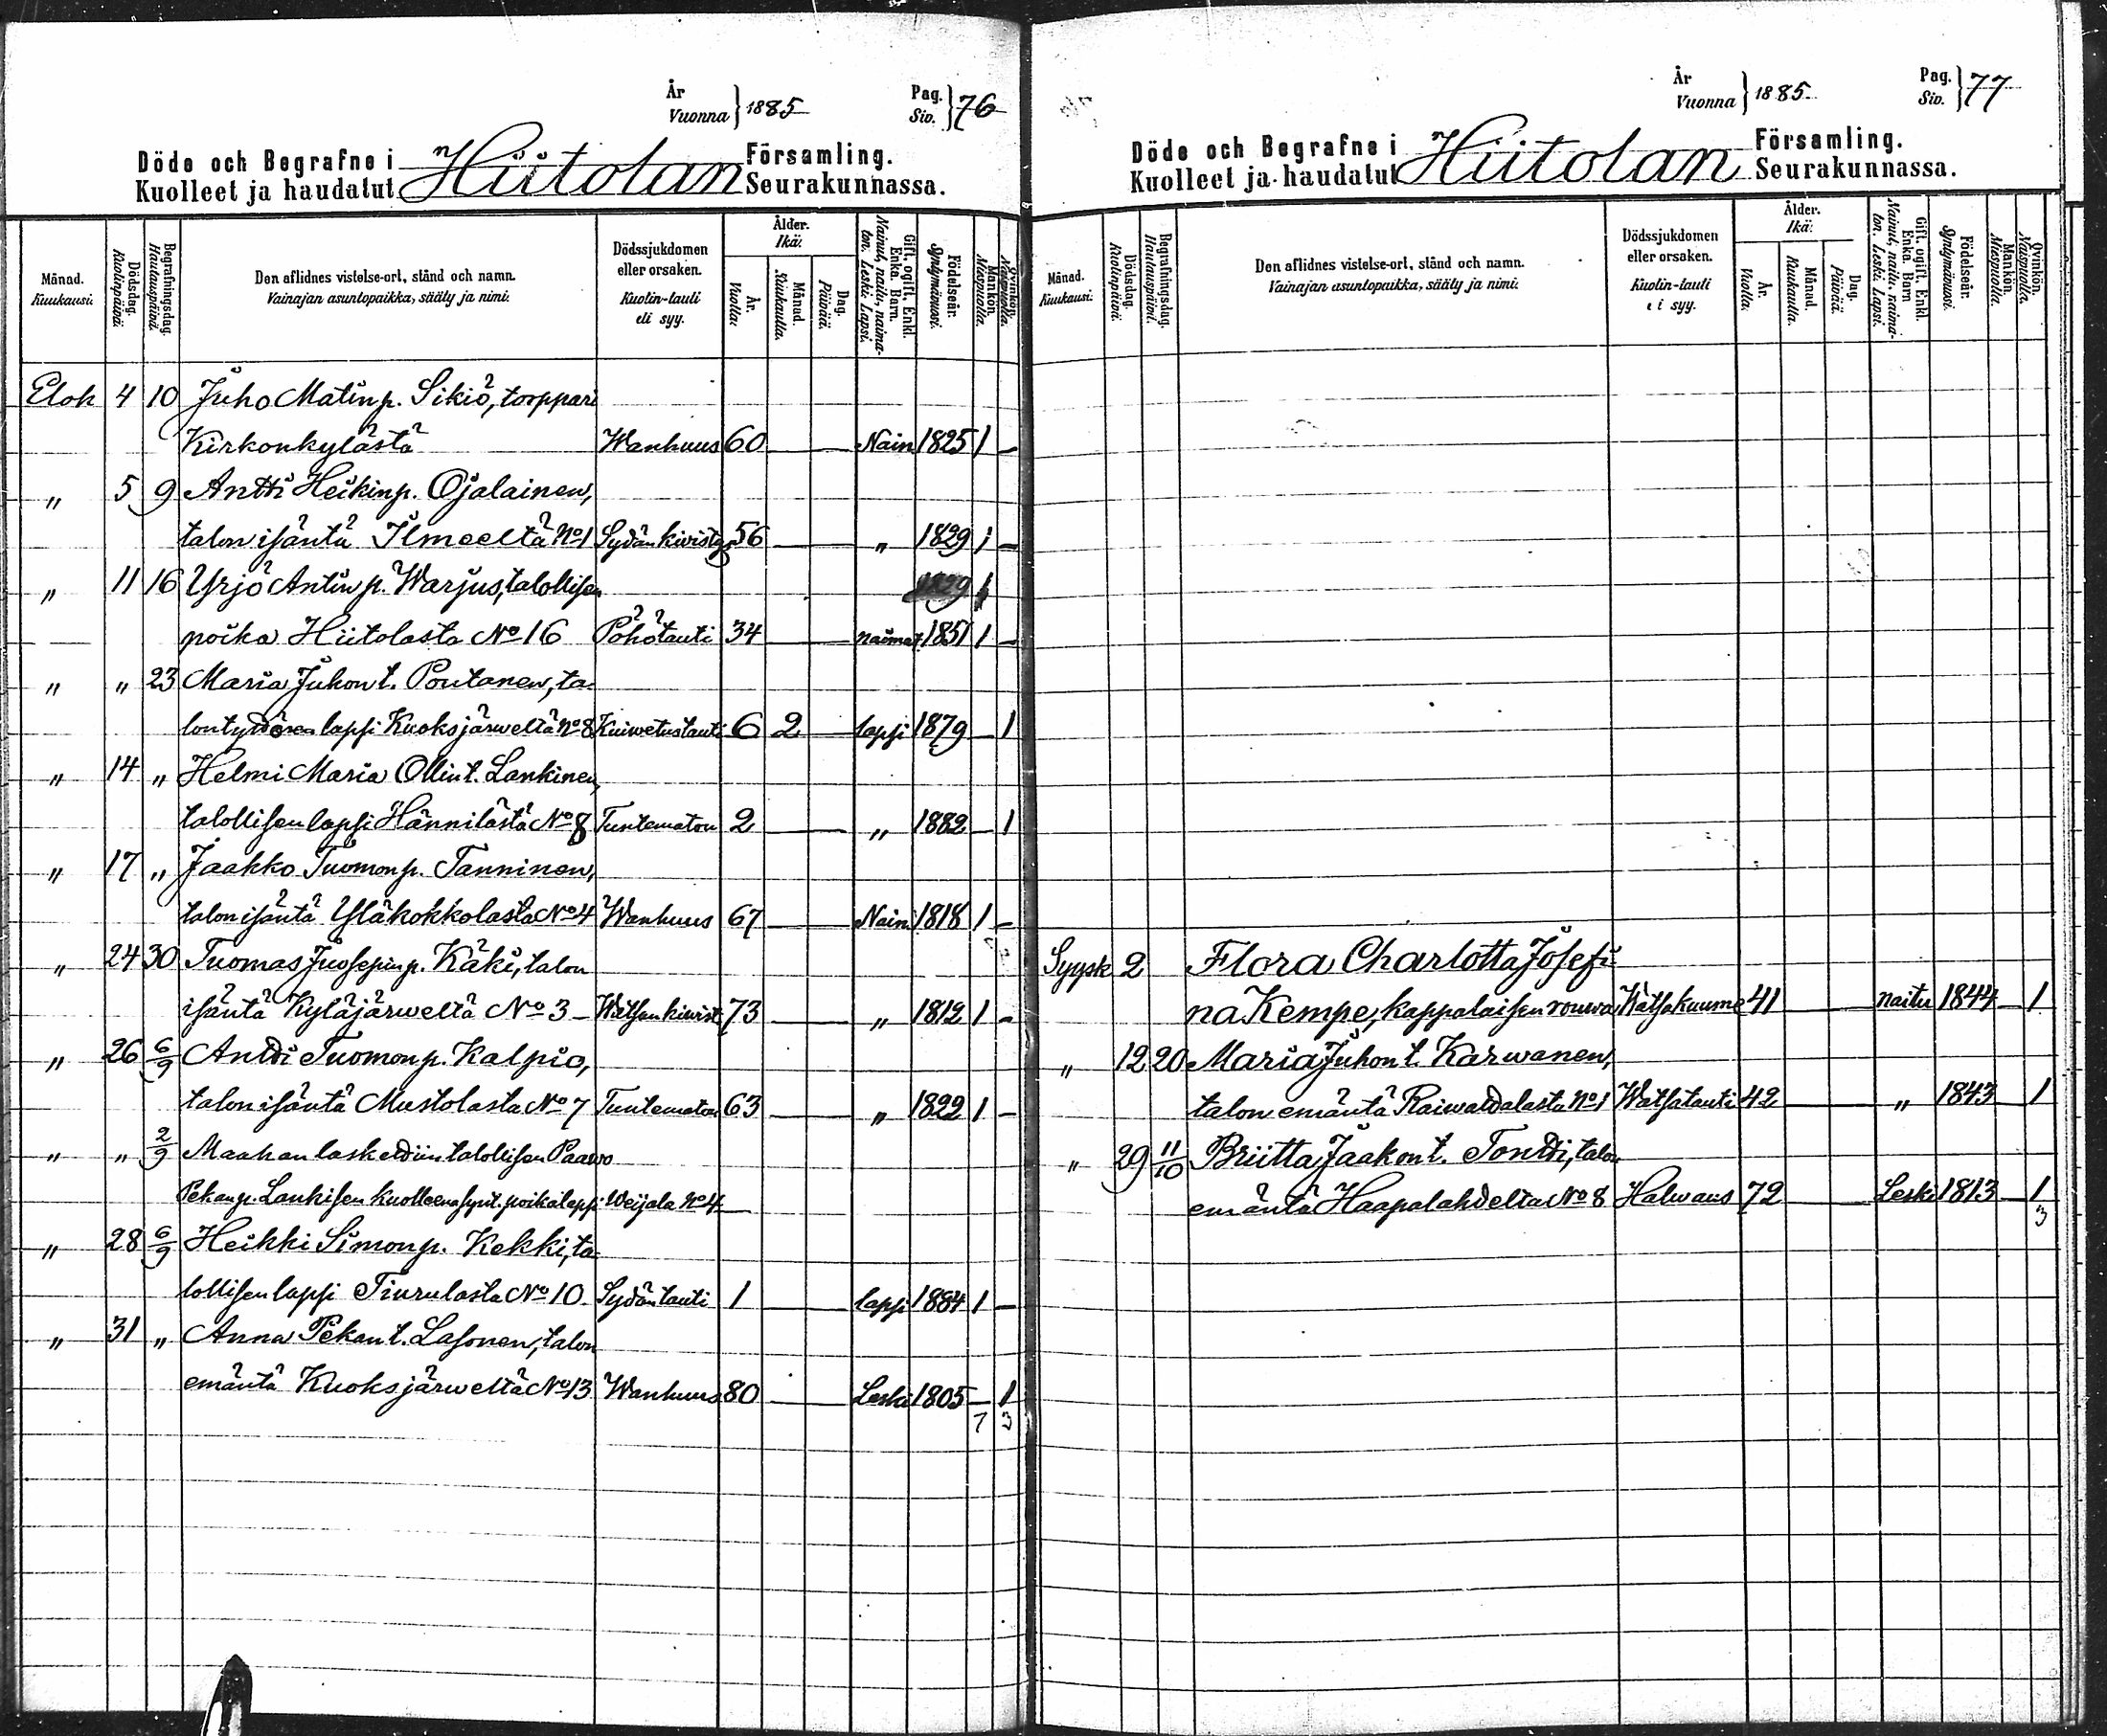 År
Vuonna } 1885
Pag.
Siv. } 76
Döde och Begrafne i Hiitolan Församling.
Kuolleet ja haudatut Seurakunnassa.
Månad. Kuukausi.
Dödsdag. Kuolinpäivä.
Begrafningsdag. Hautauspäivä.
Den aflidnes vistelse-ort, stånd och namn.
Vainajan asuntopaikka, sääty ja nimi.
Dödssjukdomen eller orsaken.
Kuolin-tauti eli syy.
Ålder. Ikä:
År. Vuotta:
Månad. Kuukautta.
Dag. Päivää.
Gift, ogift, Enkl. Enka. Barn.
Nainut, naitu, naimaton. Leski. Lapsi.
Födelseår. Syntymävuosi.
Mankön. Miespuolia.
Qvinkön. Naispuolia.
Elok 4 10 Juho Matinp. Sikiö, torppari
Kirkonkylästä Wanhuus 60 — Nain 1825 1 —
" 5 9 Antti Heikinp. Ojalainen,
talon isäntä Ilmeeltä No 1 Sydän kivistys 56 — " 1829 1 —
" 11 16 Yrjö Antinp. Warjus, talollisen
poika Hiitolasta No 16 Pöhötauti 34 — naimat 1851 1 —
" " 23 Maria Juhon t. Poutanen, ta-
lontyttären lapsi Kuoksjärweltä No 8 Kuiwetustauti 6 2 — lapsi 1879 — 1
" 14 " Helmi Maria Ollin t. Lankinen,
talollisen lapsi Hännilästä No 8 Tuntematon 2 — " 1882 — 1
" 17 " Jaakko Tuomonp. Tanninen,
talon isäntä Yläkokkolasta No 4 Wanhuus 67 — Nain 1818 1 —
" 24 30 Tuomas Juosepinp. Käki, talon
isäntä Kyläjärweltä No 3 — Watsankiwist. 73 — " 1812 1 —
" 26 6/9 Antti Tuomonp. Kalpio,
talon isäntä Mustolasta No 7 Tuntematon 63 — " 1822 1 —
" " 2/9 Maahan laskettiin talollisen Paawo
Pekanp. Lankisen kuolleena synt. poikalapsi Weijala No 4 —
" 28 6/9 Heikki Simonp. Kekki, ta-
lollisen lapsi Tiurulasta No 10 Sydäntauti 1 — lapsi 1884 1 —
" 31 " Anna Pekan t. Lasonen, talon
emäntä Kuoksjärweltä No 13 Wanhuus 80 — Leski 1805 — 1
7 3
År
Vuonna } 1885
Pag.
Siv. } 77
Döde och Begrafne i Hiitolan Församling.
Kuolleet ja haudatut Seurakunnassa.
Månad. Kuukausi.
Dödsdag. Kuolinpäivä.
Begrafningsdag. Hautauspäivä.
Den aflidnes vistelse-ort, stånd och namn.
Vainajan asuntopaikka, sääty ja nimi.
Dödssjukdomen eller orsaken.
Kuolin-tauti e i syy.
Ålder. Ikä:
År. Vuotta:
Månad. Kuukautta.
Dag. Päivää.
Gift, ogift, Enkl. Enka. Barn
Nainut, naitu, naimaton. Leski. Lapsi.
Födelseår. Syntymävuosi.
Mankön. Miespuolia.
Qvinkön. Naispuolia.
Syysk 2 Flora Charlotta Josefi-
na Kempe, kappalaisen rouwa Watsakuume 41 — naitu 1844 — 1
" 12 20 Maria Juhon t. Karwanen,
talon emäntä Raiwattalasta No 1 Watsatauti 42 — " 1843 — 1
" 29 11/10 Briitta Jaakon t. Tontti, talon
emäntä Haapalahdelta No 8 Halwaus 72 — Leski 1813 — 1
3